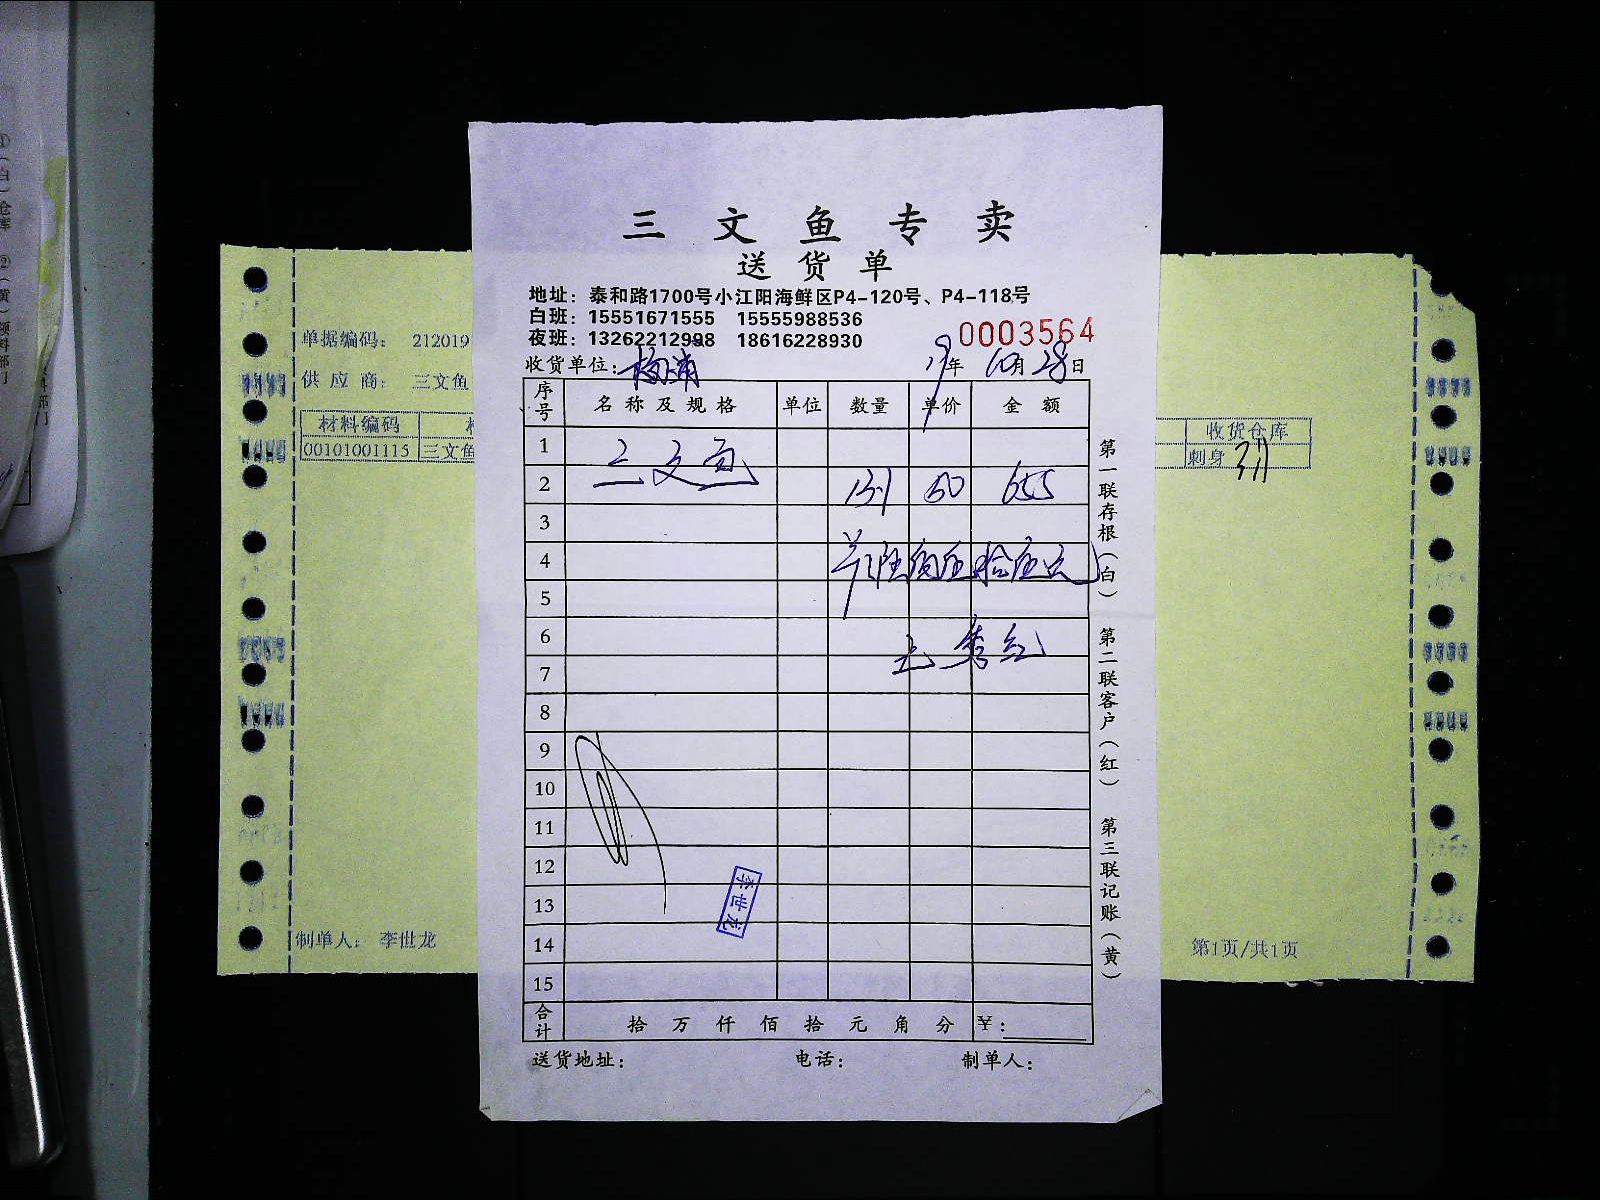 三文鱼专卖
送货单
地址：泰和路1700号小江阳海鲜区P4-120号、P4-118号
白班：15551671555 15555988536
夜班：13262212998 18616228930
0003564
收货单位：梅浦 19年10月28日
序号 名称及规格 单位 数量 单价 金额
1
2 三文鱼 13.1 50 655
3
4
5
6
7
8
9
10
11
12
13
14
15
李世龙
合计 拾万仟佰拾元角分 ￥：
送货地址： 电话： 制单人：
第一联存根（白） 第二联客户（红） 第三联记账（黄）
单据编码： 212019
供应商： 三文鱼
材料编码
00101001115 三文鱼
收货仓库
刺身
制单人： 李世龙
第1页/共1页